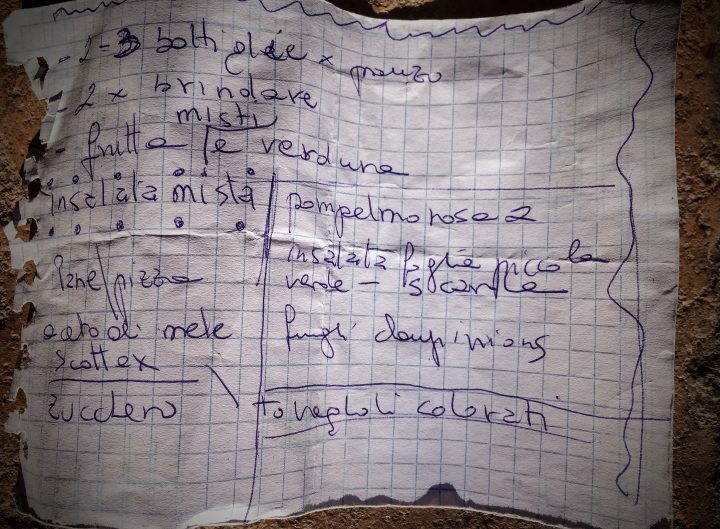 - 2-3 bottiglie x pranzo
- 2 x brindare
misti
- frutta e verdure
insalata mista
pane/pizza
aceto di mele
scottex
zucchero
pompelmo rosa 2
insalata foglia piccola
verde - scarola
funghi champinions
tovaglioli colorati